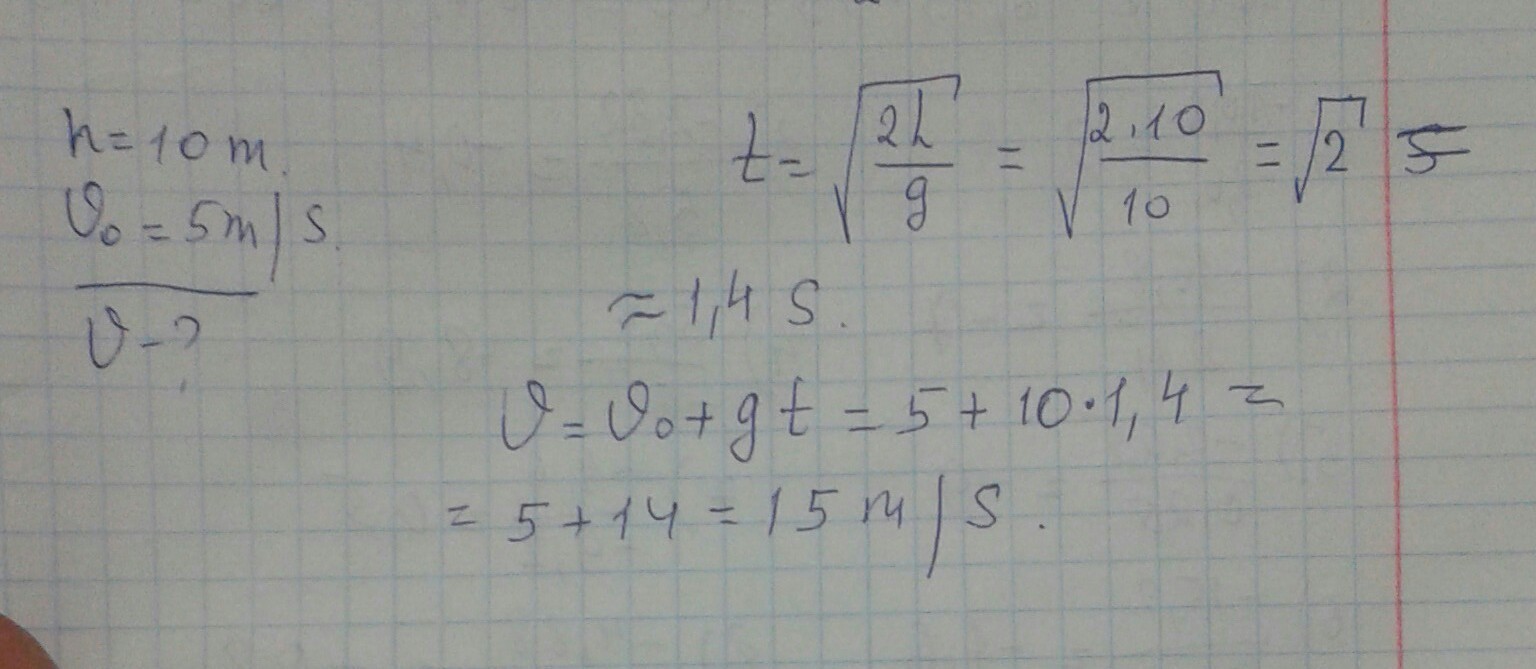 h = 10 m.
υ₀ = 5 m/s.
υ - ?
t = √(2h/g) = √(2·10/10) = √2 s =
≈ 1,4 s.
υ = υ₀ + gt = 5 + 10·1,4 =
= 5 + 14 = 15 m/s.